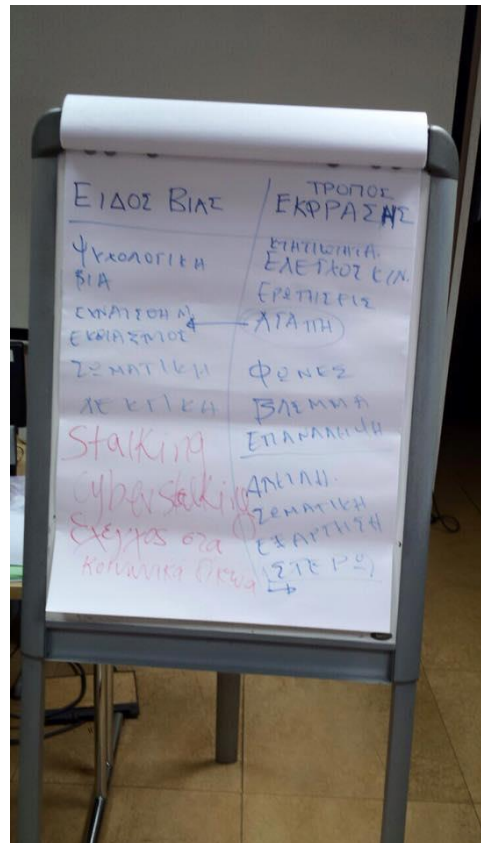 ΕΙΔΟΣ ΒΙΑΣ
ΨΥΧΟΛΟΓΙΚΗ
ΒΙΑ
ΕΚΒΙΑΣΜΟΣ
ΣΩΜΑΤΙΚΗ
ΛΕΚΤΙΚΗ
Stalking
Cyberstalking
Έλεγχος στα
κοινωνικά δίκτυα
ΤΡΟΠΟΣ
ΕΚΦΡΑΣΗΣ
ΕΛΕΓΧΟΣ ΚΙΝ.
ΕΡΩΤΗΣΕΙΣ
ΑΓΑΠΗ
ΦΩΝΕΣ
ΒΛΕΜΜΑ
ΕΠΑΝΑΛΗΨΗ
ΑΠΕΙΛΗ.
ΣΩΜΑΤΙΚΗ
ΕΞΑΡΤΗΣΗ